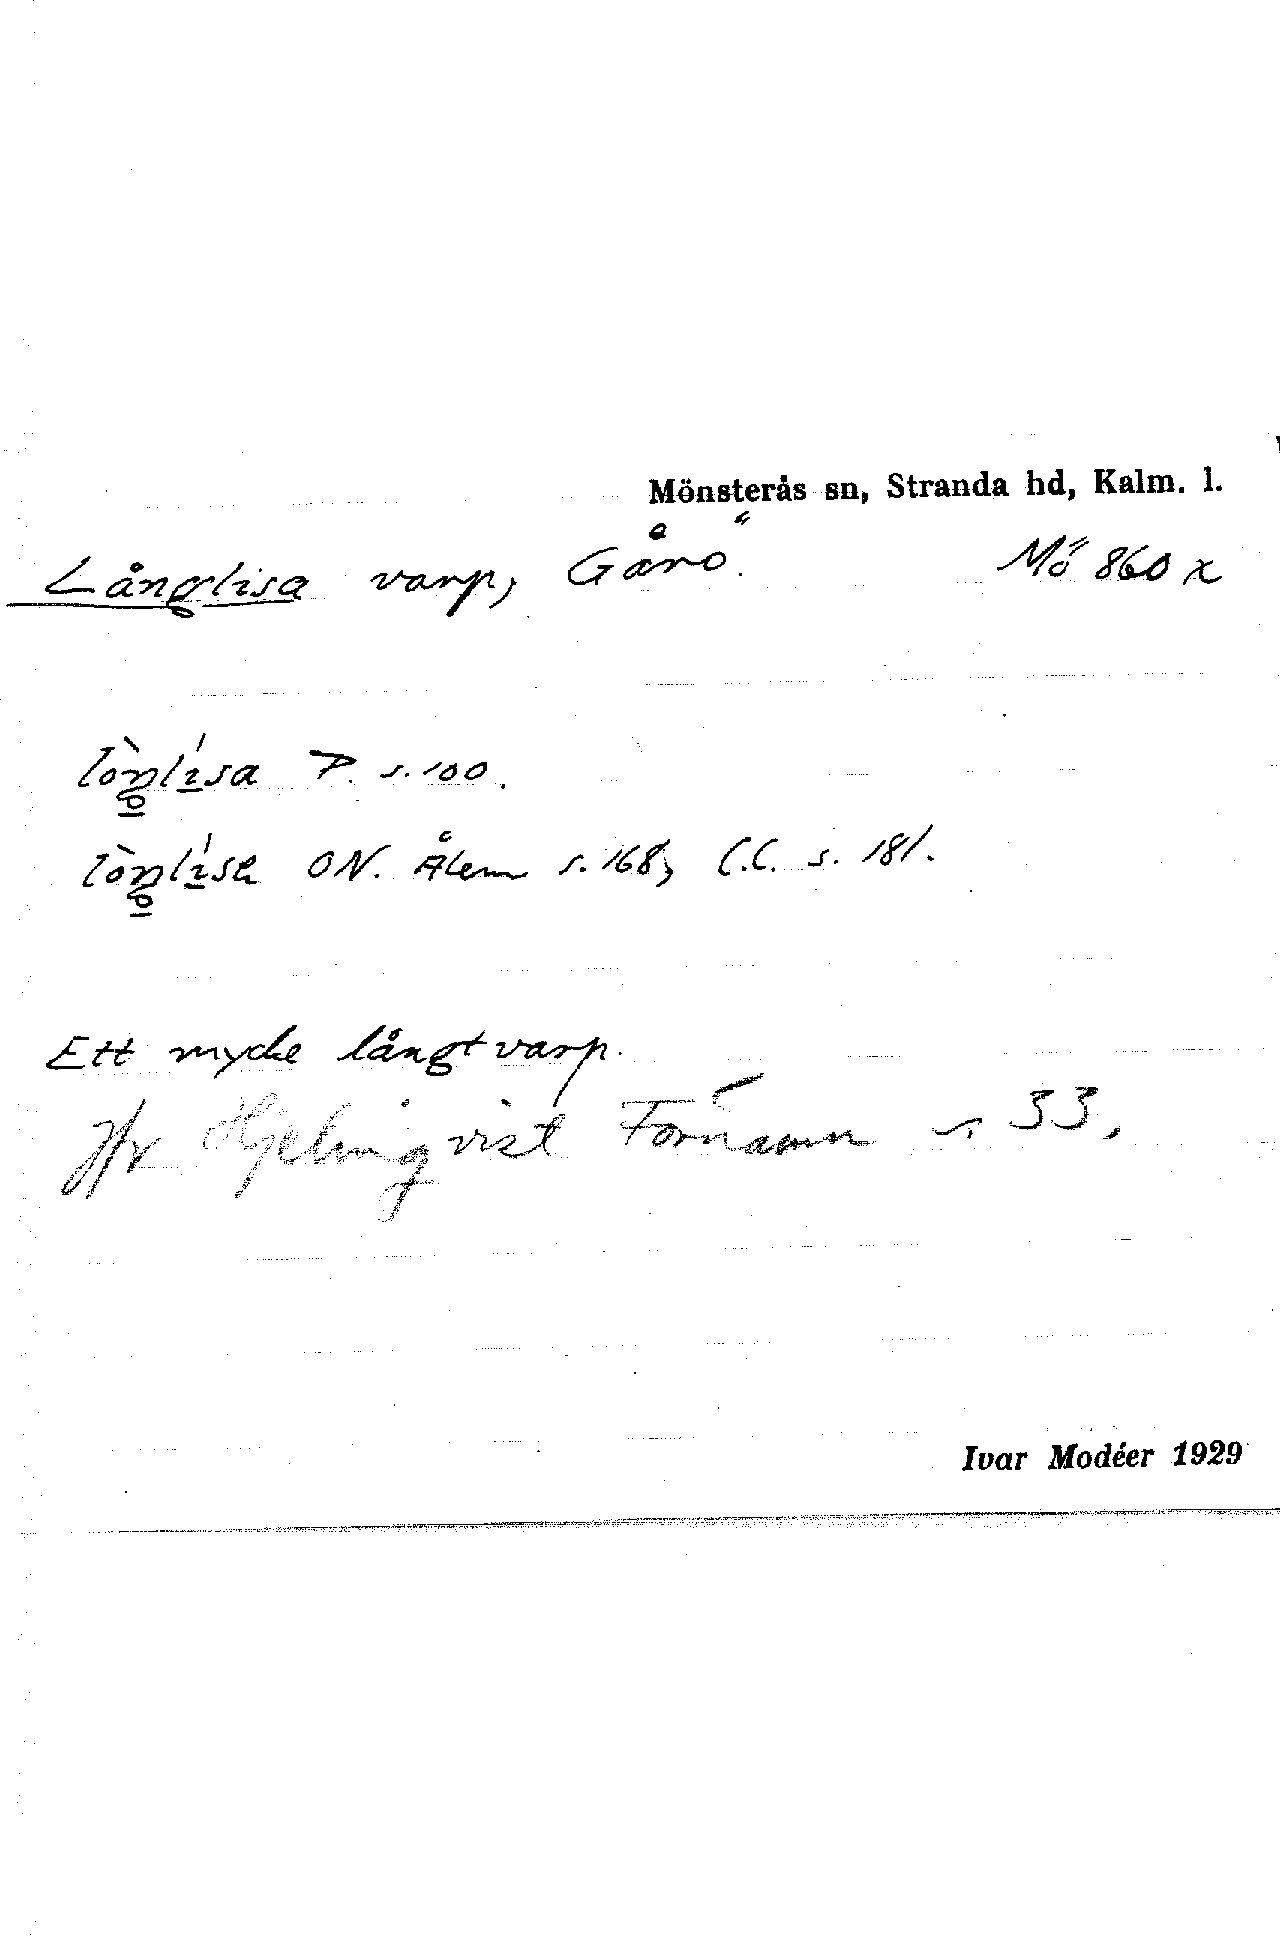 Mönsterås sn, Stranda hd, Kalm. l.
Långlisa varp, Gårö. Mö 860 x
P. s. 100.
ON. Ålem s. 168, C.C. s. 181.
Ett mycke långt varp.
Jfr Hjelmqvist Förnamn s. 33.
Ivar Modéer 1929